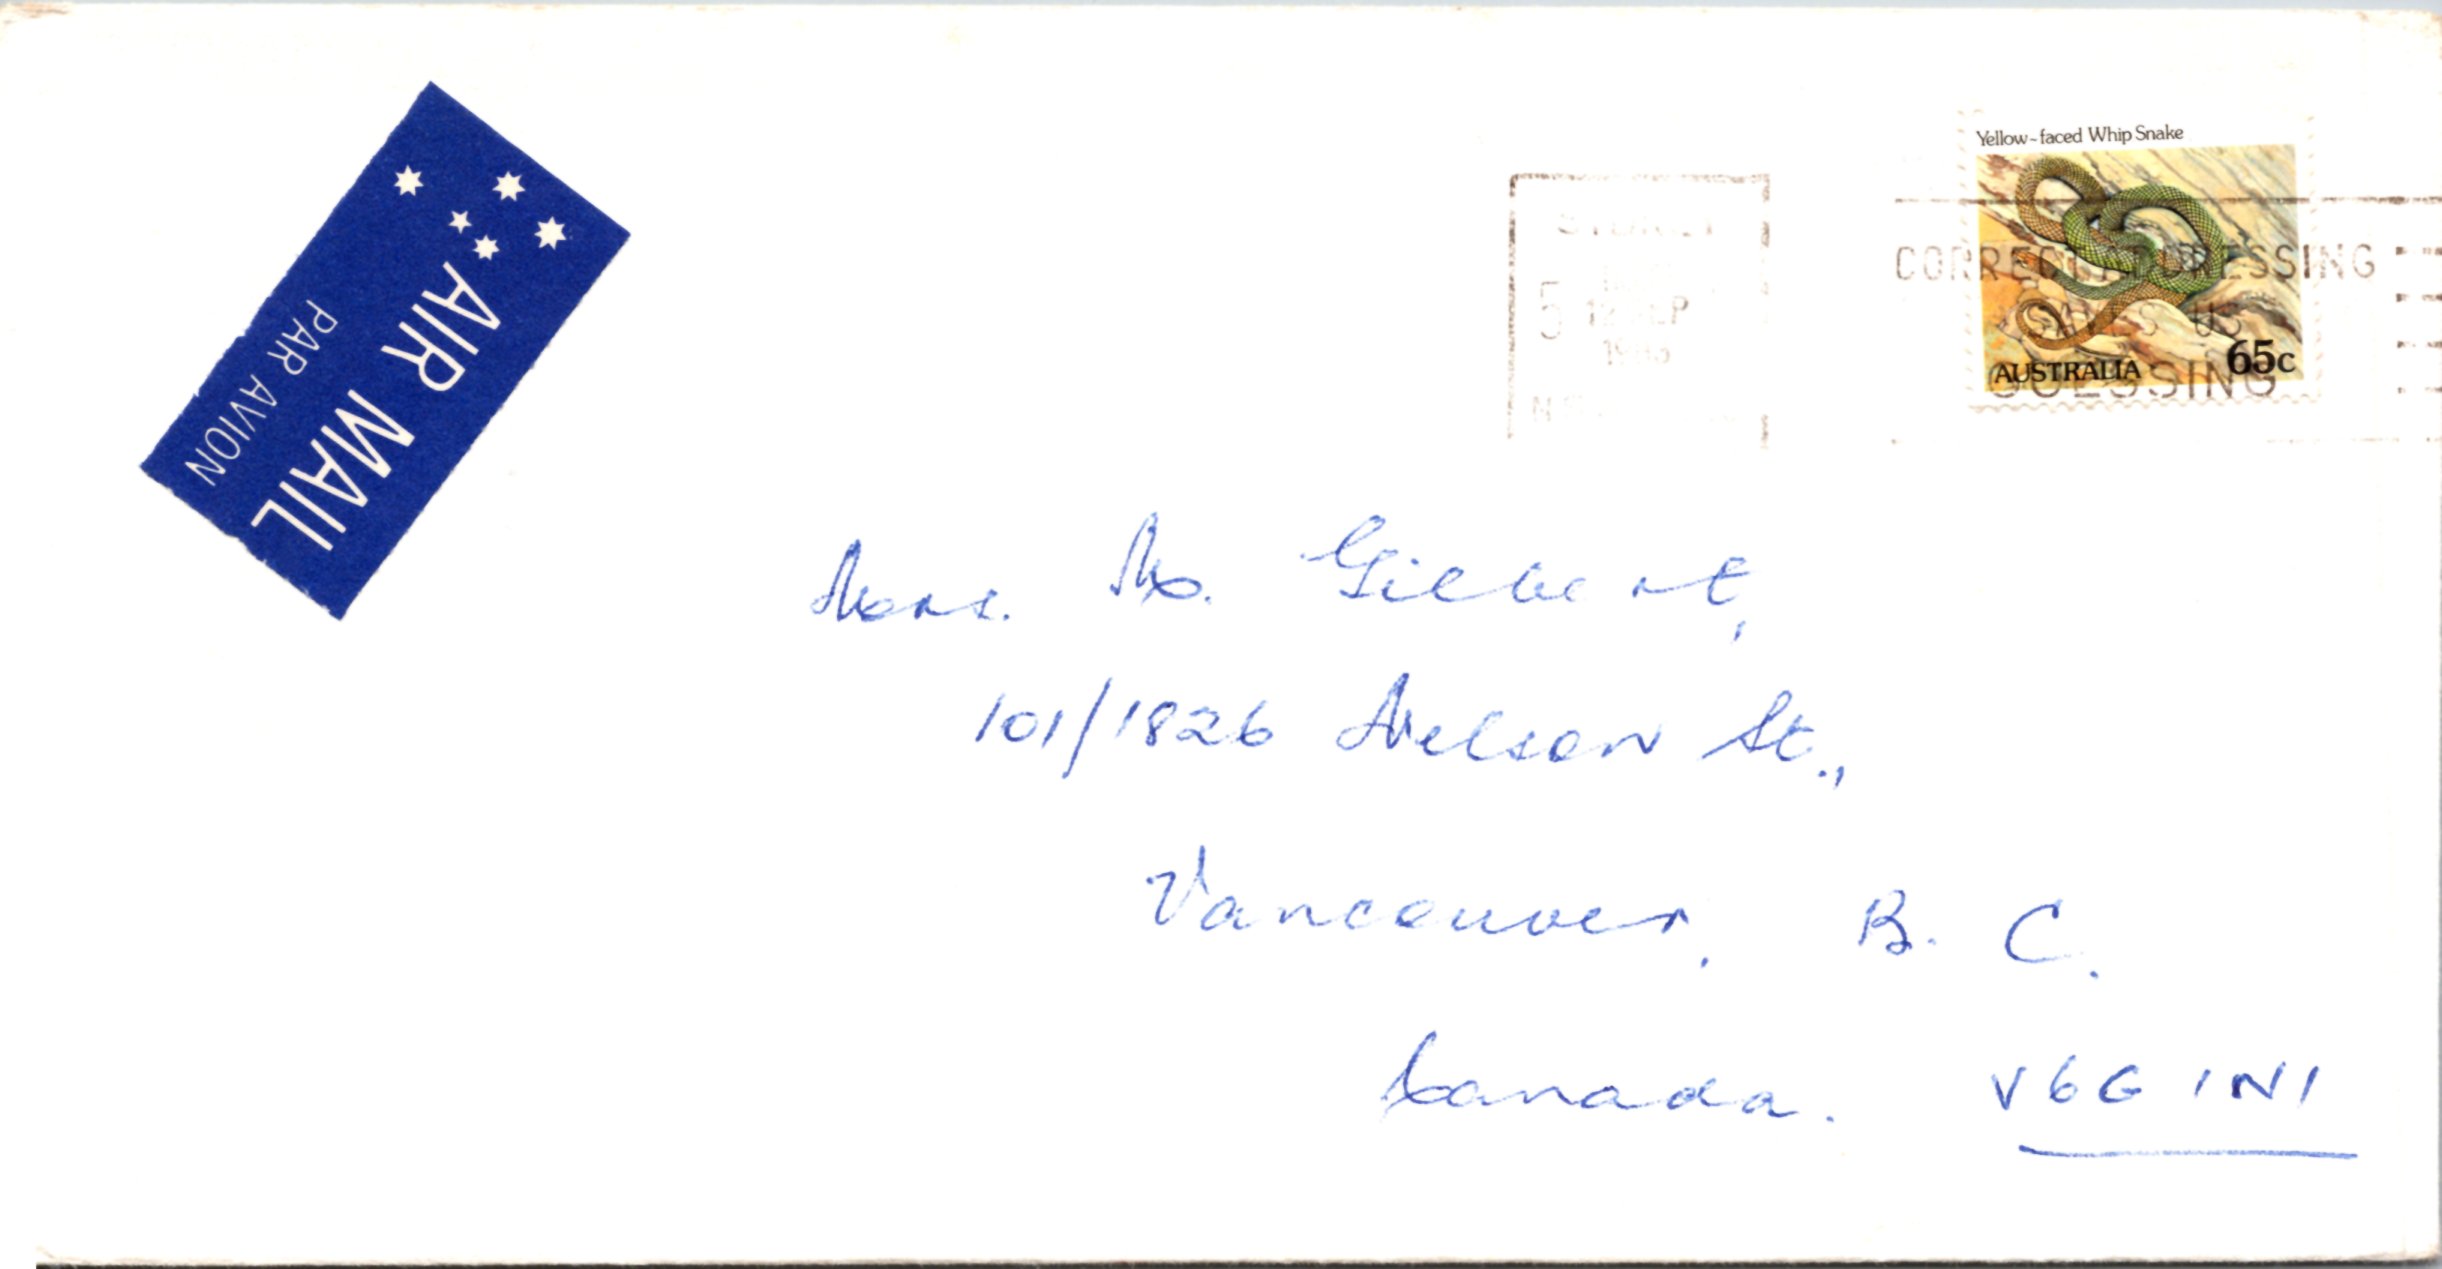 AIR MAIL
PAR AVION
SYDNEY
5
12 SEP
Yellow-faced Whip Snake
AUSTRALIA 65c
CORRECT ADDRESSING
SAVES US
GUESSING
Mrs. M. Gilbert,
101/1826 Nelson St.,
Vancouver, B. C.
Canada. V6G 1N1